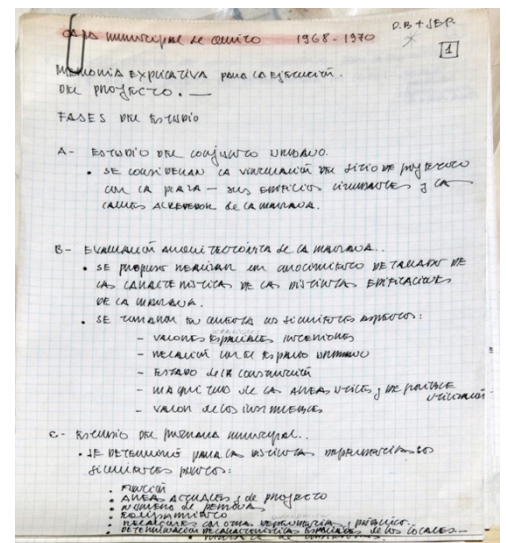 D.B + SER.
Casa municipal de Quito 1968-1970
1
Memoria explicativa para la ejecución
del proyecto. —
FASES DEL ESTUDIO
A- ESTUDIO DEL conjunto urbano.
• SE consideran la vinculación del sitio de proyecto
con la plaza - sus edificios circundantes y las
calles alrededor de la manzana.
B- Evaluación arquitectónica de la manzana..
• se propuso realizar un conocimiento detallado de
las características de las distintas edificaciones
de la manzana.
• SE tomaron en cuenta los siguientes aspectos:
- valores espaciales interiores
- relación con el espacio urbano
- estado de la construcción
- magnitud de las áreas utiles y de posible
utilización
- valor de los inmuebles
C- Estudio del programa municipal..
• se determinó para las distintas dependencias los
siguientes puntos:
• Función
• Areas actuales y de proyecto
• Número de personas
• Equipamiento
• relaciones con otras dependencias y público..
• Determinación de características espaciales de los locales -